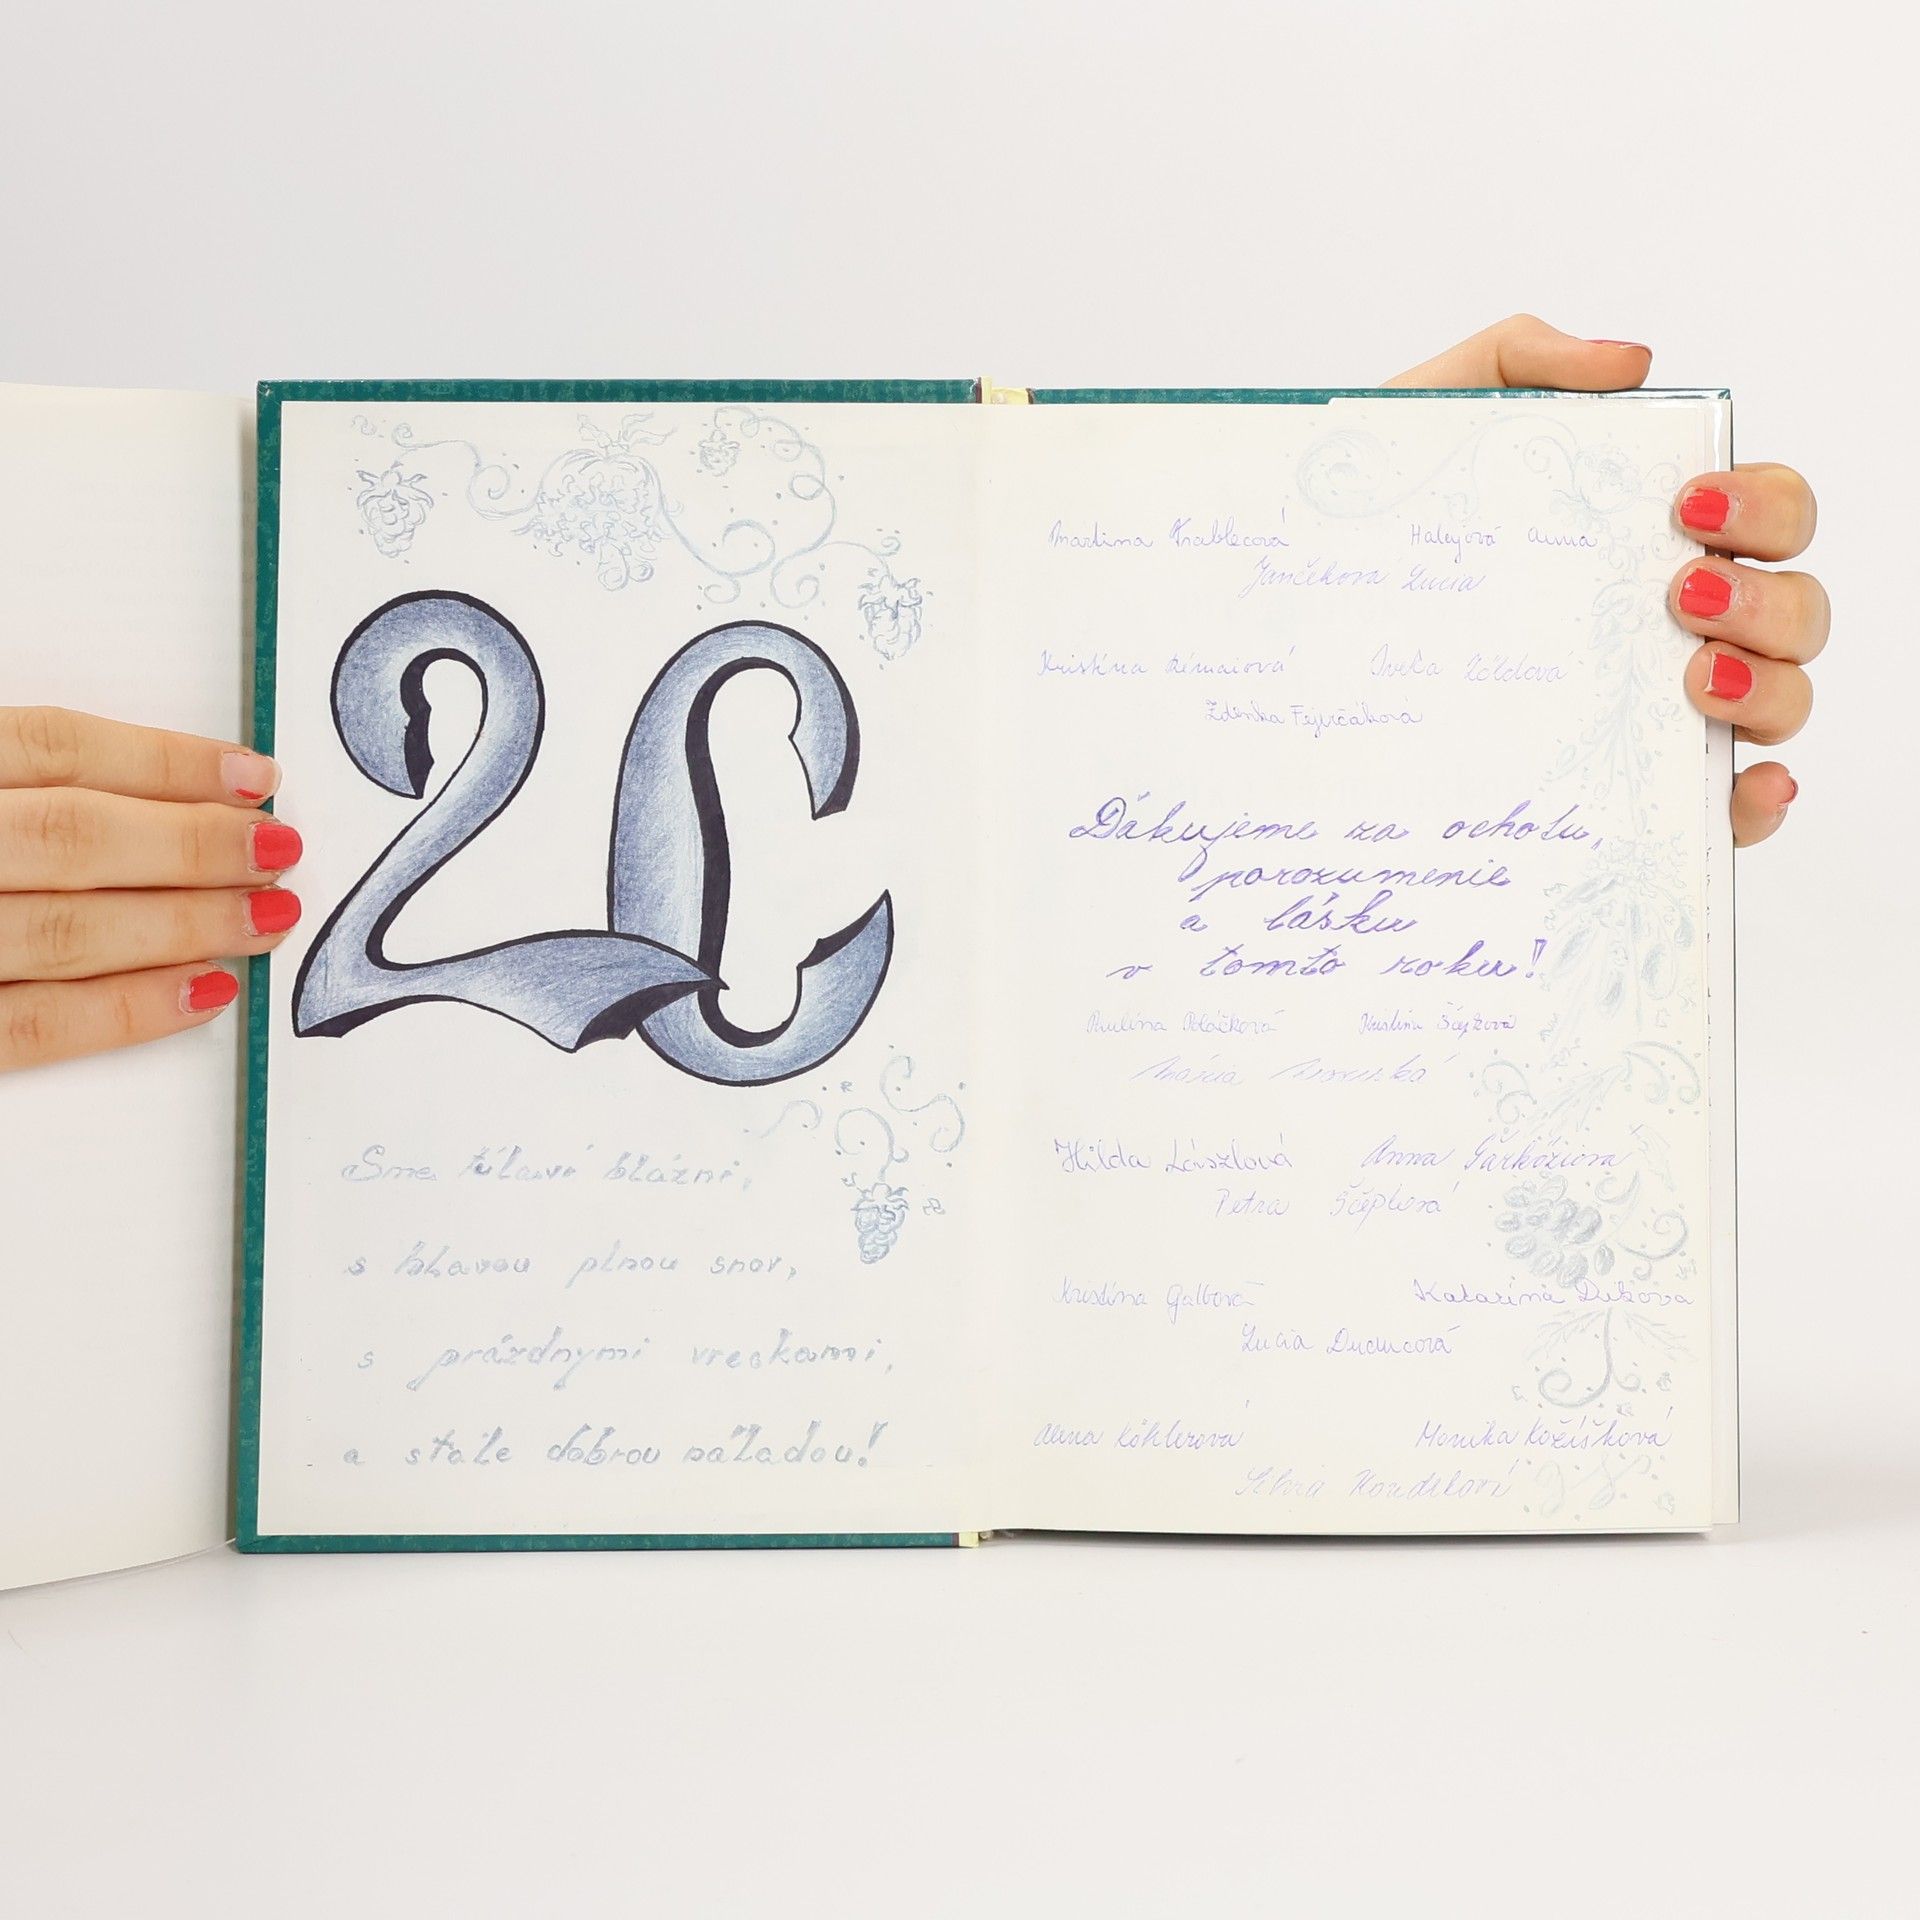 2C
Sme túlaví blázni,
s hlavou plnou snov,
s prázdnymi vreckami,
a stále dobrou náladou!
Martina Hrablecová Halejová Anna
Jančeková Lucia
Kristína Iveta Zöldová
Zdenka Fejerčáková
Ďakujeme za ochotu,
porozumenie
a lásku
v tomto roku!
Paulína Poláčková Kristína
Mária
Hilda Lászlová Anna Šárköziova
Petra Ščepková
Kristína Galbová Katarína Dubova
Lucia Duducová
Alena Köhlerová Monika Kožíšková
Silvia Kondelová